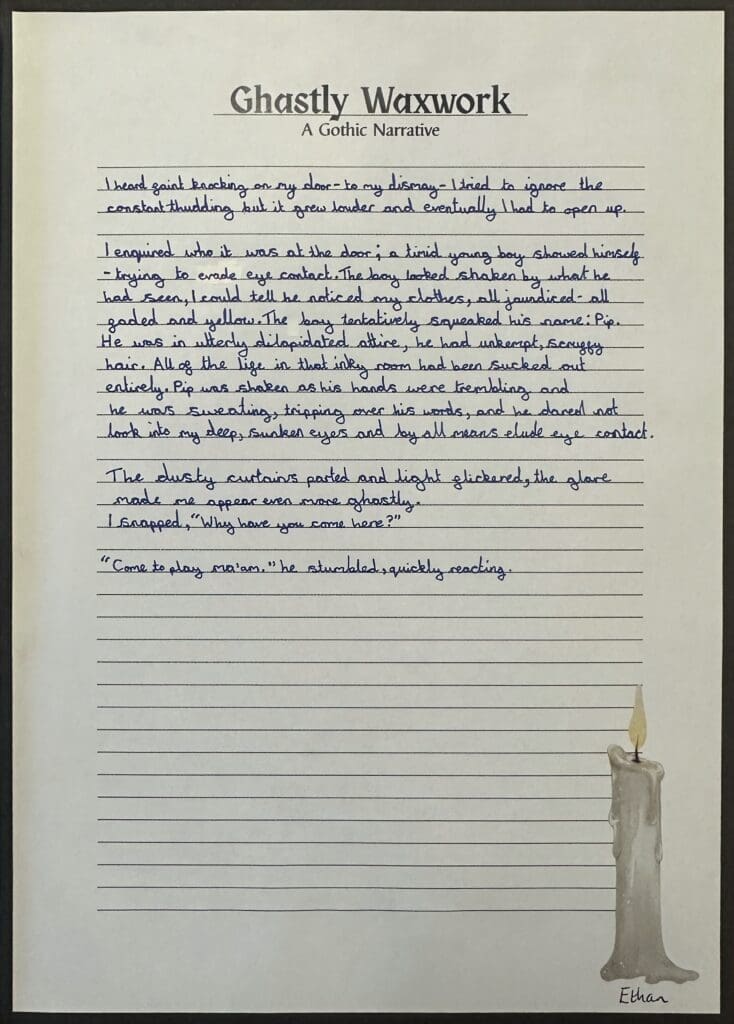 Ghastly Waxwork
A Gothic Narrative
I heard faint knocking on my door - to my dismay - I tried to ignore the
constant thudding but it grew louder and eventually I had to open up.
I enquired who it was at the door; a timid young boy showed himself
- trying to evade eye contact. The boy looked shaken by what he
had seen, I could tell he noticed my clothes, all jaundiced - all
faded and yellow. The boy tentatively squeaked his name: Pip.
He was in utterly dilapidated attire, he had unkempt, scruffy
hair. All of the life in that inky room had been sucked out
entirely. Pip was shaken as his hands were trembling and
he was sweating, tripping over his words, and he dared not
look into my deep, sunken eyes and by all means elude eye contact.
The dusty curtains parted and light flickered, the glare
made me appear even more ghastly.
I snapped, "Why have you come here?"
"Come to play ma'am." he stumbled, quickly reacting.
Ethan